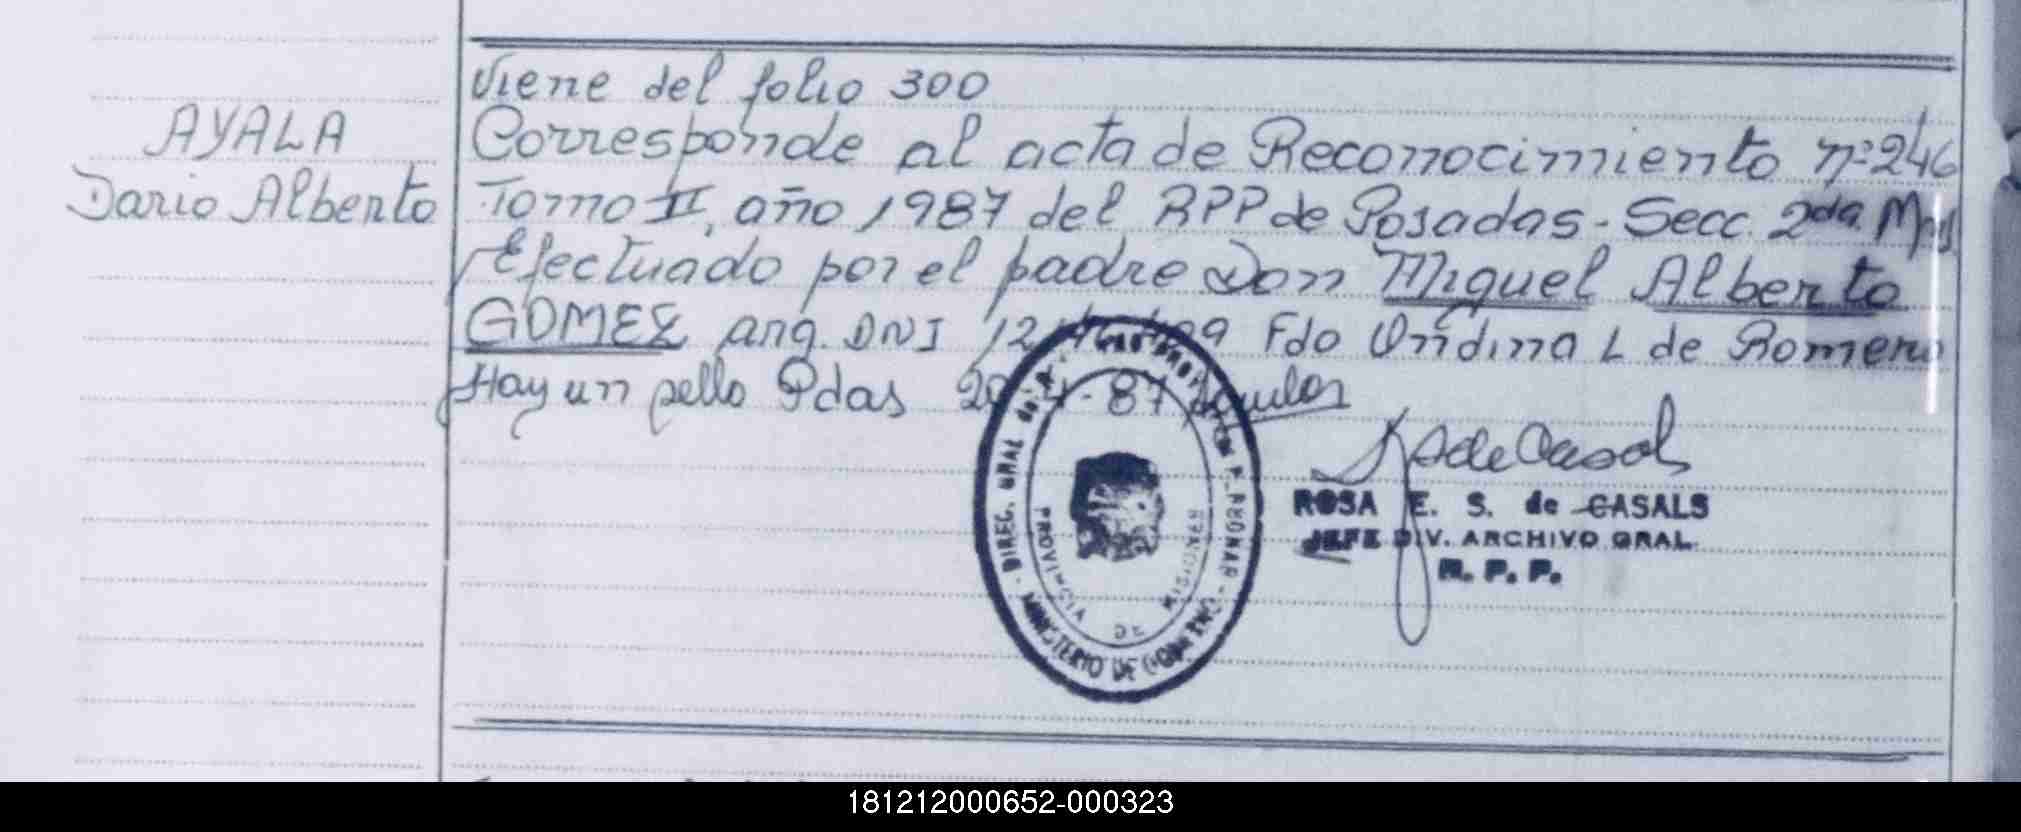 Viene del folio 300
AYALA
Dario Alberto
Corresponde al acta de Reconocimiento nº 246
Tomo II, año 1987 del RPP de Posadas - Secc. 2da. Mns.
Efectuado por el padre Don Miguel Alberto
GOMEZ arg. DNI Fdo Ondina L de Romero
Hay un sello Pdas 87
ROSA E. S. de CASALS
JEFE DIV. ARCHIVO GRAL.
R. P. P.
DIREC. GRAL del
PROVINCIA DE MISIONES
MINISTERIO DE GOBIERNO
181212000652-000323